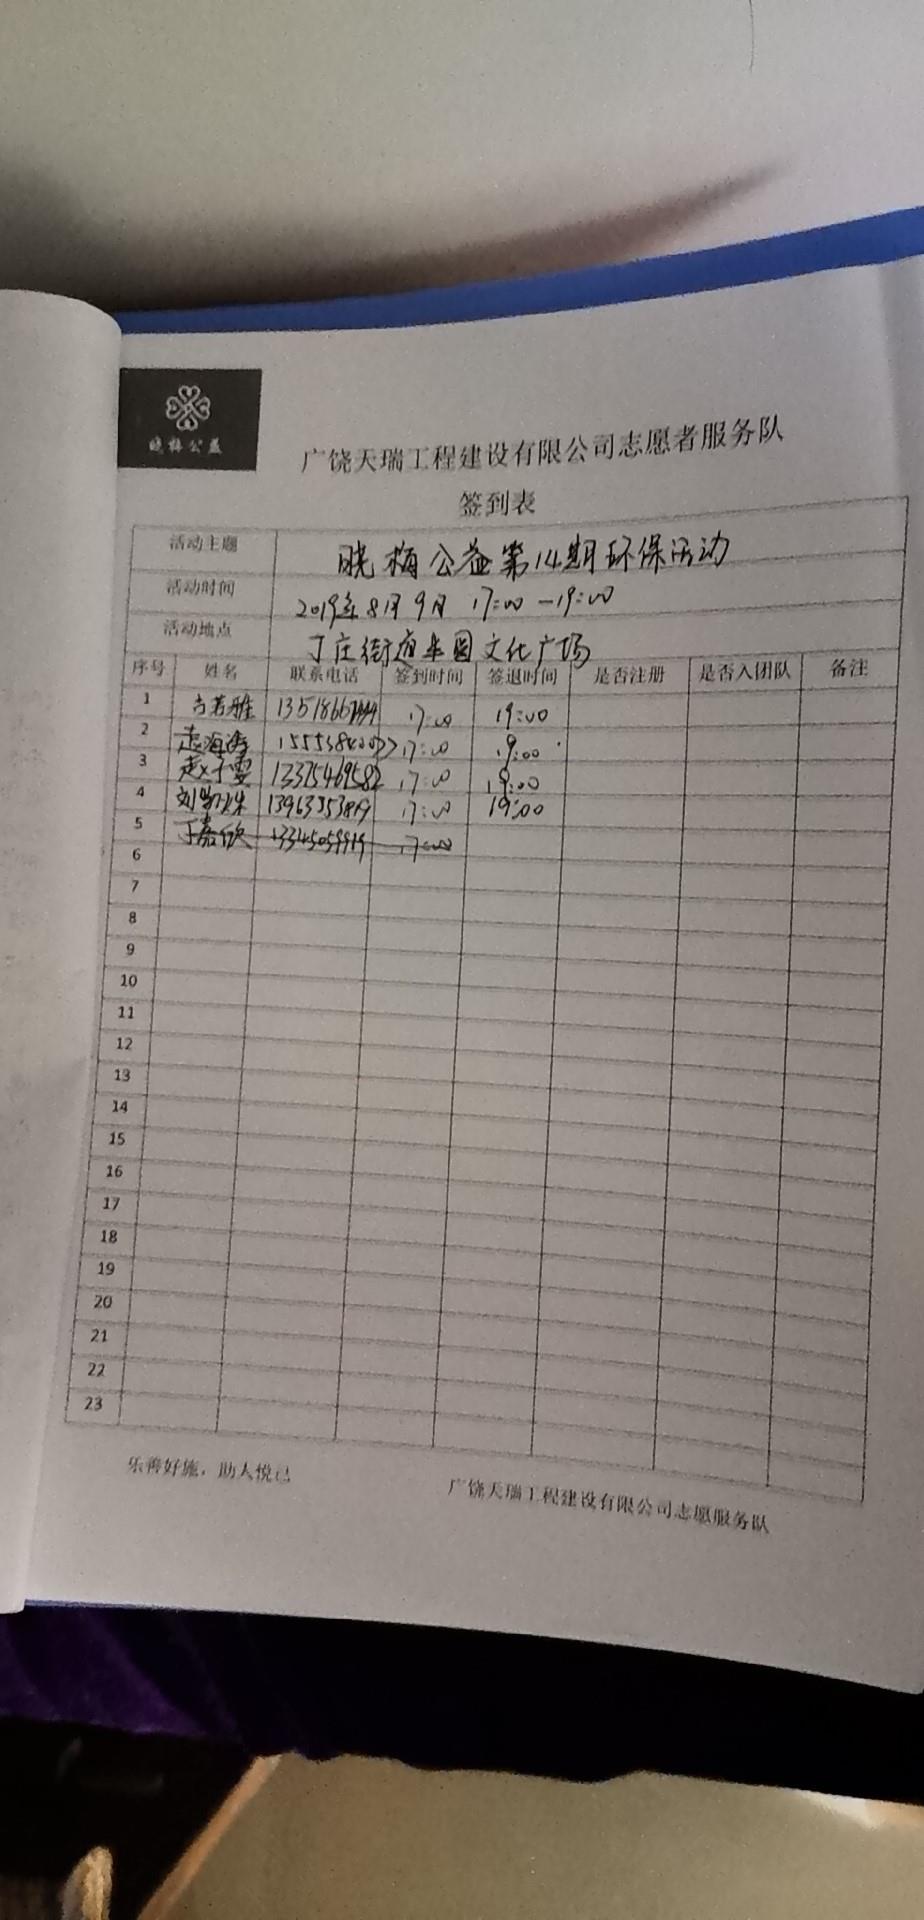 晓梅公益
广饶天瑞工程建设有限公司志愿者服务队
签到表
活动主题 晓梅公益第14期环保活动
活动时间 2019年8月9日 17:00—19:00
活动地点 丁庄街道半圆文化广场
序号 姓名 联系电话 签到时间 签退时间 是否注册 是否入团队 备注
1 17:00 19:00
2 赵海涛 17:00 19:00
3 赵子雯 13375469582 17:00 19:00
4 13963353819 17:00 19:00
5 丁嘉欣 13345059919 17:00
6
7
8
9
10
11
12
13
14
15
16
17
18
19
20
21
22
23
乐善好施，助人悦己
广饶天瑞工程建设有限公司志愿服务队